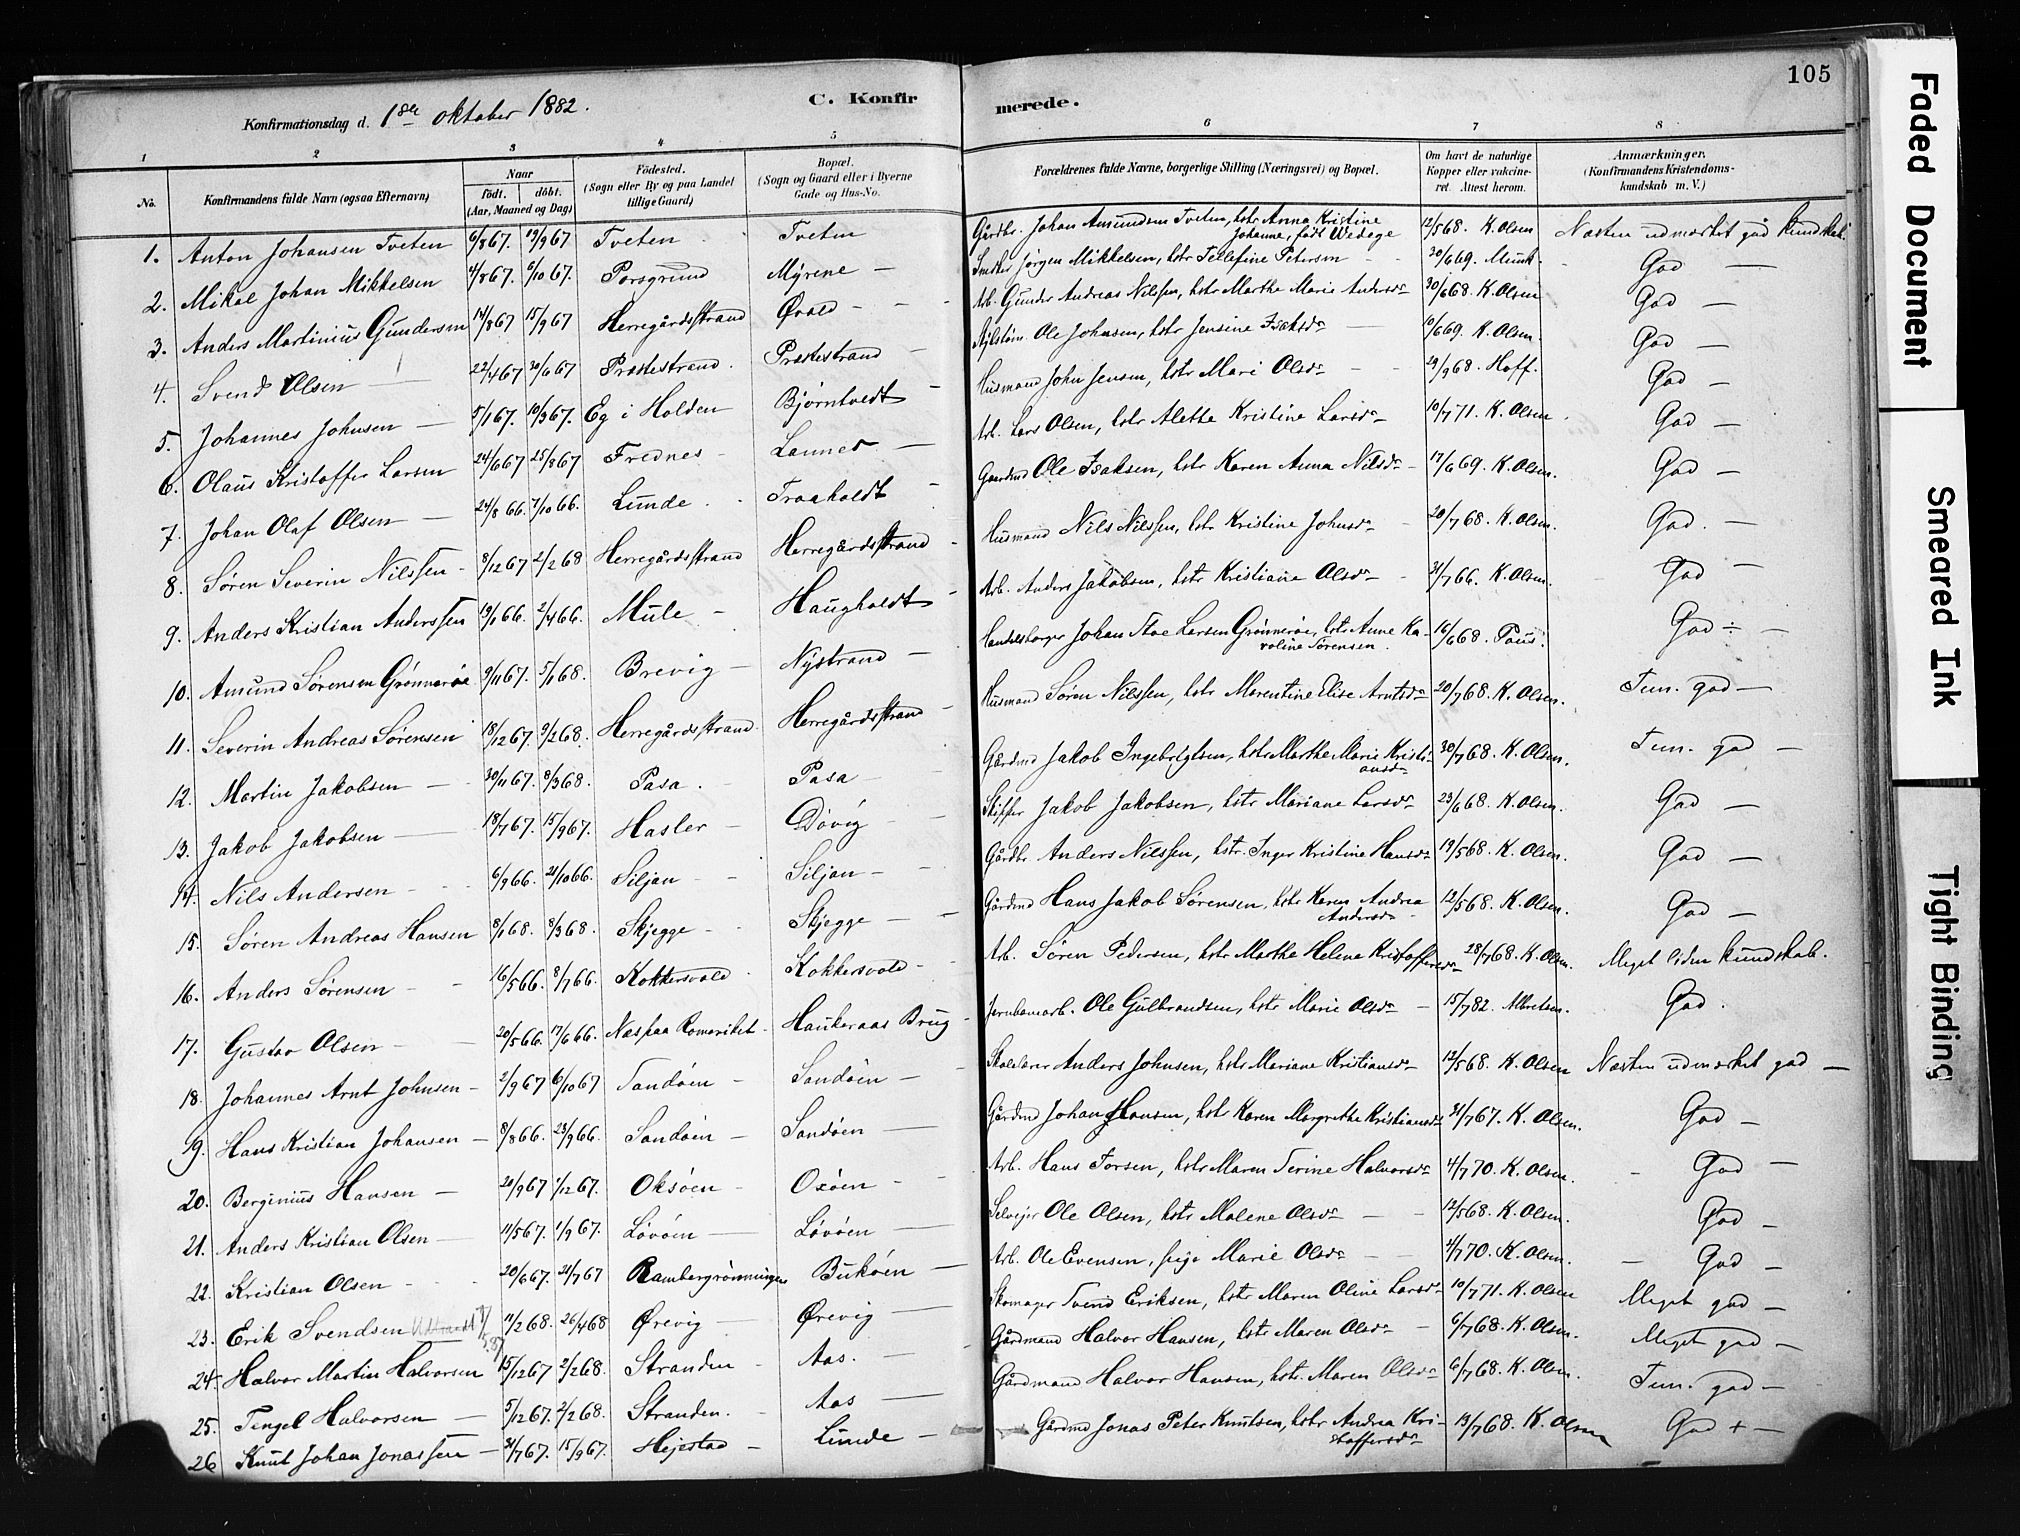 105
Konfirmationsdag d. 1ste oktober 1882. C. Konfirmerede.
1 2 3 4 5 6 7 8
No. Konfirmandens fulde Navn (ogsaa Efternavn) Naar födt. döbt. (Aar, Maaned og Dag) Födested. (Sogn eller By og paa Landet tillige Gaard) Bopæl. (Sogn og Gaard eller i Byerne Gade og Hus-No. Forældrenes fulde Navne, borgerlige Stilling (Næringsvei) og Bopæl. Om havt de naturlige Kopper eller vaccineret. Attest herom. Anmærkninger. (Konfirmandens Kristendomskundskab m. V.)
1. Anton Johansen Tveten 6/8 67. 19/9 67 Tveten Tveten Gårdbr. Johan Amundsen Tveten, hstr Anna Kristine Johanne, født Wedege 12/5 68. K. Olsen Næsten udmærket god kundskab.
2. Mikal Johan Mikkelsen 4/8 67. 6/10 67. Porsgrund Myrene — Smed Jörgen Mikkelsen, hstr Tellefine Petersen 20/6 69. Munk. God —
3. Anders Martinius Gundersen 14/8 67 15/9 67 Herregårdsstrand Øvald — Arb. Gunder Andreas Nilssen, hstr Marthe Marie Andersdr 30/6 68. K. Olsen God —
4. Svend Olsen — 22/4 67 30/6 67 Præstestrand. Præstestrand — Ole Johnsen, hstr Jensine Isaksdr 10/6 69. K. Olsen. God —
5. Johannes Johnsen — 5/1 67. 10/3 67. Eg i Holden Bjørntvedt — Husmand John Jensen, hstr Mari Olsdr 29/9 68. Hoff. God —
6. Olaus Kristoffer Larsen 24/6 67 25/8 67 Frednes — Lannes — Arb. Lars Olsen, hstr Alette Kristine Larsdr 10/7 71. K. Olsen God —
7. Johan Olaf Olsen — 24/8 66. 7/10 66. Lunde. Traaholdt — Gaardmd Ole Isaksen, hstr Karen Anna Nilsdr 17/6 69. K. Olsen. God —
8. Søren Severin Nilssen — 8/12 67 2/2 68 Herregårdsstrand Herregårdsstrand Husmand Nils Nilssen, hstr Kristine Johnsdr 20/7 68. K. Olsen. God. —
9. Anders Kristian Anderssen 19/1 66. 2/4 66. Mule — Haugholdt — Arb. Anders Jakobsen, hstr Kristiane Olsdr — 31/7 66. K. Olsen. God —
10. Amund Sørensen Grønnerøe 9/11 67. 5/1 68. Brevig — Nystrand — Handelsborger Johan Stoe Larsen Grønnerøe, hstr Anne Karoline Sørensen. 16/6 68. Paus. God ÷ —
11. Severin Andreas Sørensen 18/12 67. 9/2 68. Herregårdsstrand Herregårdsstrand — Husmand Søren Nilssen, hstr Marentine Elise Arntsdr 20/7 68. K. Olsen. Tem. god —
12. Martin Jakobsen — 30/11 67. 8/3 68. Pasa. Pasa — Gårdmd Jakob Ingebrigtsen, hstr Marthe Marie Kristiansdr 30/7 68. K. Olsen. Tem. god —
13. Jakob Jakobsen — 18/7 67. 15/9 67. Hasler — Døvig — Skipper Jakob Jakobsen, hstr Mariane Larsdr 23/6 68. K. Olsen. God —
14. Nils Andersen 6/9 66. 21/10 66. Siljan — Siljan — Gårdbr Anders Nilssen, hstr. Inger Kristine Hansdr 19/5 68. K. Olsen. God —
15. Søren Andreas Hansen 8/1 68. 8/3 68. Skjegge — Skjegge — Gårdmd Hans Jakob Sørensen, hstr Karen Andrea Andersdr 12/5 68. K. Olsen. God —
16. Anders Sørensen 16/5 66. 8/7 66. Kokkersvold — Kokkersvold — Arb. Søren Pedersen, hstr Marthe Helene Kristoffersdr 28/7 68. K. Olsen. Meget liden kundskab.
17. Gustav Olsen — 20/5 66. 17/6 66. Næs paa Romeriket — Haukeraas Brug Jernbanearb. Ole Gulbrandsen, hstr Marie Olsdr — 15/7 82. God.
18. Johannes Arnt Johnsen — 2/9 67 6/10 67 Sandøen — Sandøen — Skolelærer Anders Johnsen, hstr Mariane Kristiansdr 12/5 68. K. Olsen Næsten udmærket god —
19. Hans Kristian Johansen — 8/8 66. 23/9 66. Sandøen — Sandøen — Gårdmd Johan Hansen, hstr Karen Margrethe Kristiansdr 31/7 67. K. Olsen. God —
20. Berginius Hansen — 20/9 67 1/12 67. Oksøen — Oxøen — Arb. Hans Torsen, hstr Maren Terine Halvorsdr 4/7 70. K. Olsen. God —
21. Anders Kristian Olsen — 11/5 67. 1/9 67. Løvøen — Løvøen — Selvejer Ole Olsen, hstr Malene Olsdr 12/5 68. K. Olsen. God —
22. Kristian Olsen 20/6 67. 21/7 67 Rambergrønningen Bukøen — Arb. Ole Evensen, pige Marie Olsdr 4/7 70. K. Olsen. God —
23. Erik Svendsen 11/2 68. 26/4 68 Ørevig — Ørevig — Skomager Svend Eriksen, hstr Maren Oline Larsdr 10/7 71. K. Olsen Meget god —
24. Halvor Martin Halvorsen 15/12 67 2/2 68. Stranden Aas. — Gårdmand Halvor Hansen, hstr Maren Olsdr — 6/7 68. K. Olsen. Meget god —
25. Tengel Halvorsen — 5/12 67. 2/2 68. Stranden. Aas — Gårdmand Halvor Hansen, hstr. Maren Olsdr 6/7 68. K. Olsen. Tem. god —
26 Knut Johan Jonassen — 31/7 67. 15/9 67. Hejestad — Lunde — Gårdmd Jonas Peter Knutsen, hstr Andrea Kristoffersdr 13/7 68. K. Olsen God + —
Faded Document
Smeared Ink
Tight Binding